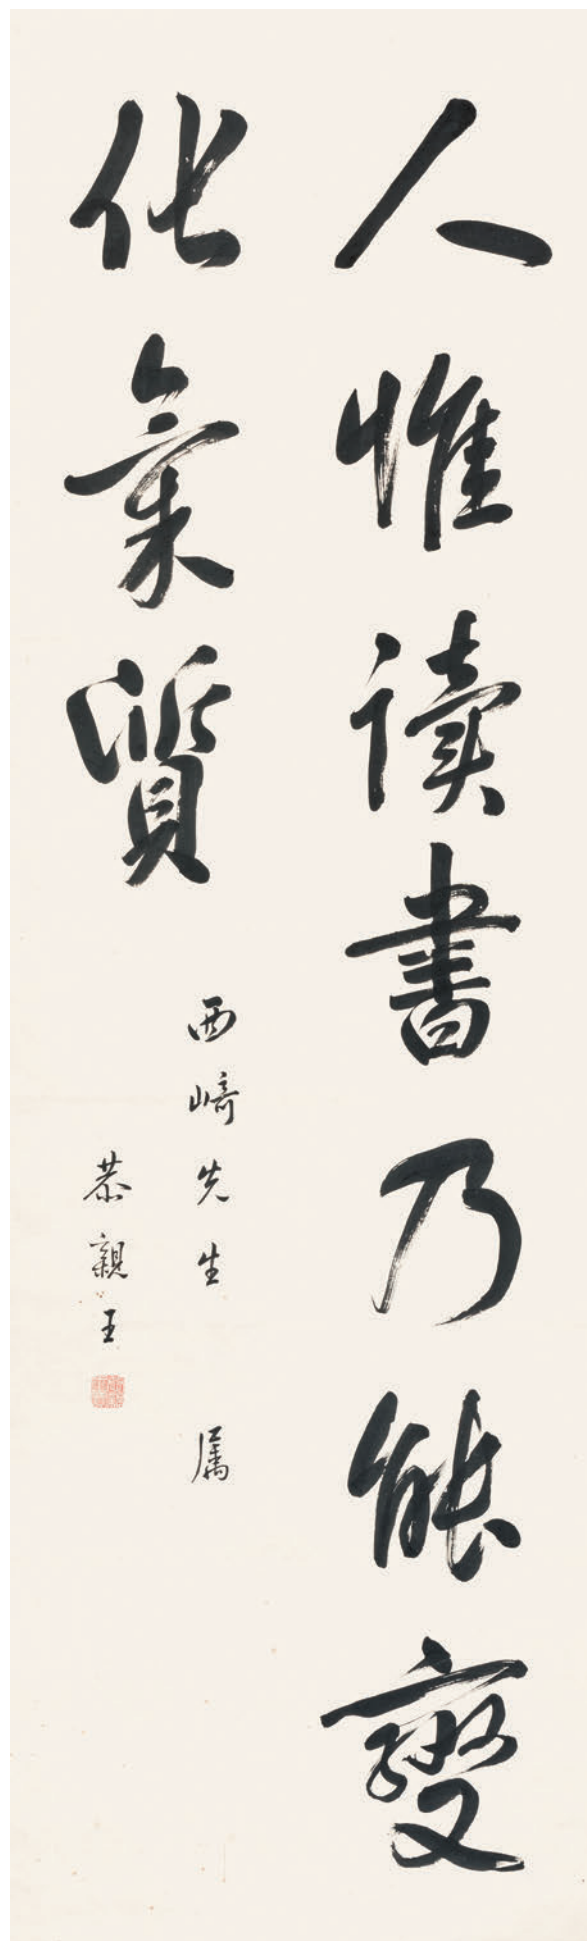 人惟读書乃能變
化氣質
西﨑先生 属
恭親王